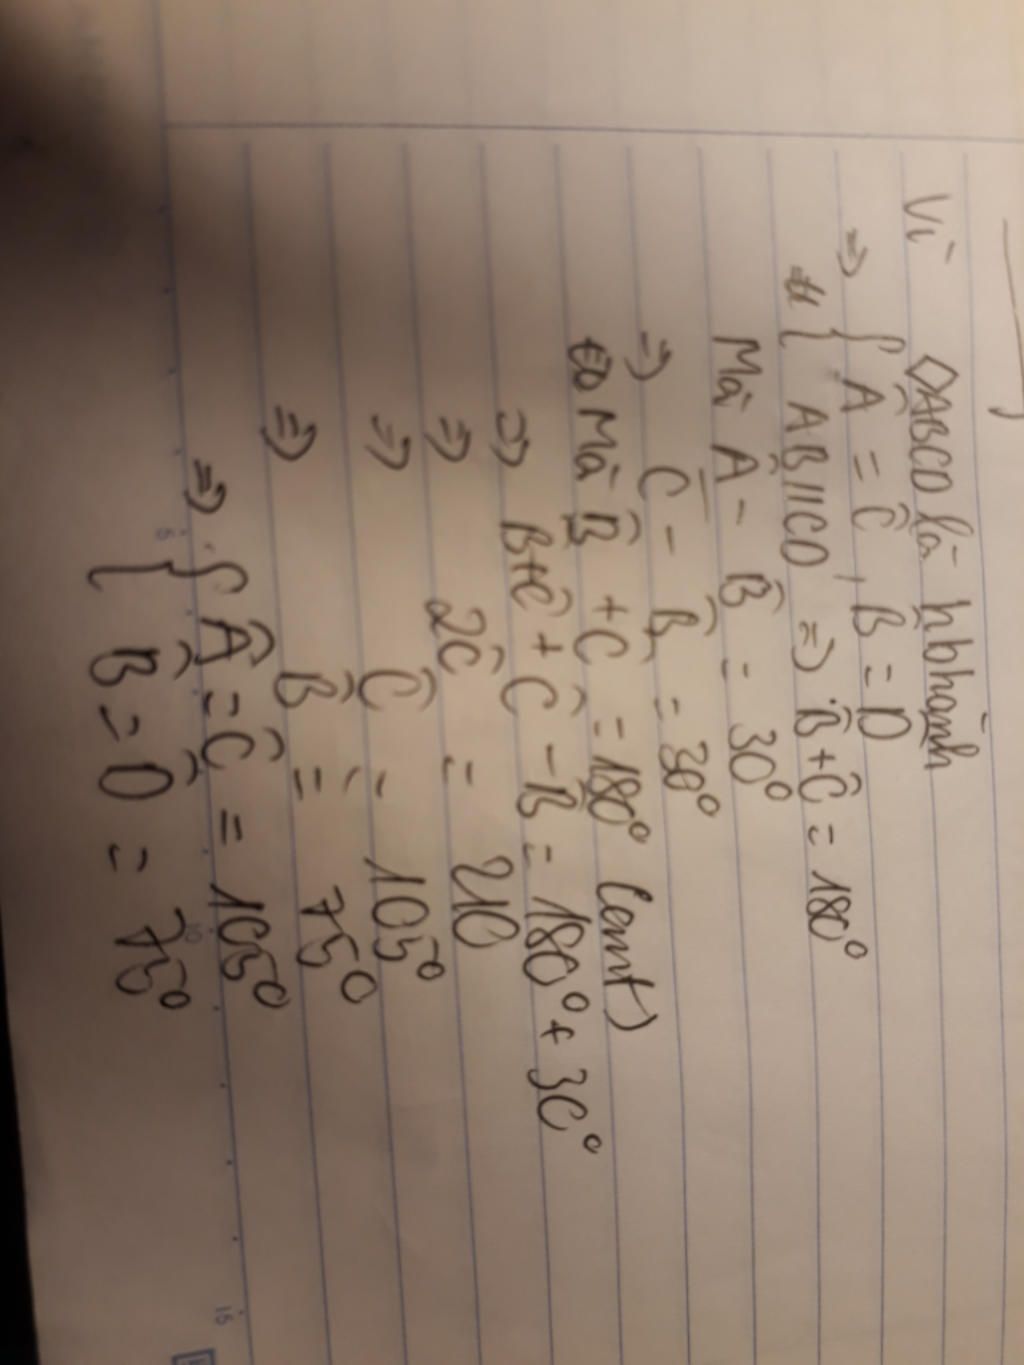 Vì ◇ABCD là hbhành
=> { Â = Ĉ , B̂ = D̂
{ AB//CD => B̂ + Ĉ = 180°
Mà Â - B̂ = 30°
=> Ĉ - B̂ = 30°
Mà B̂ + Ĉ = 180° (cmt)
=> B̂ + Ĉ + Ĉ - B̂ = 180° + 30°
=> 2Ĉ = 210
=> Ĉ = 105°
=> B̂ = 75°
=> { Â = Ĉ = 105°
{ B̂ = D̂ = 75°
5
10
15